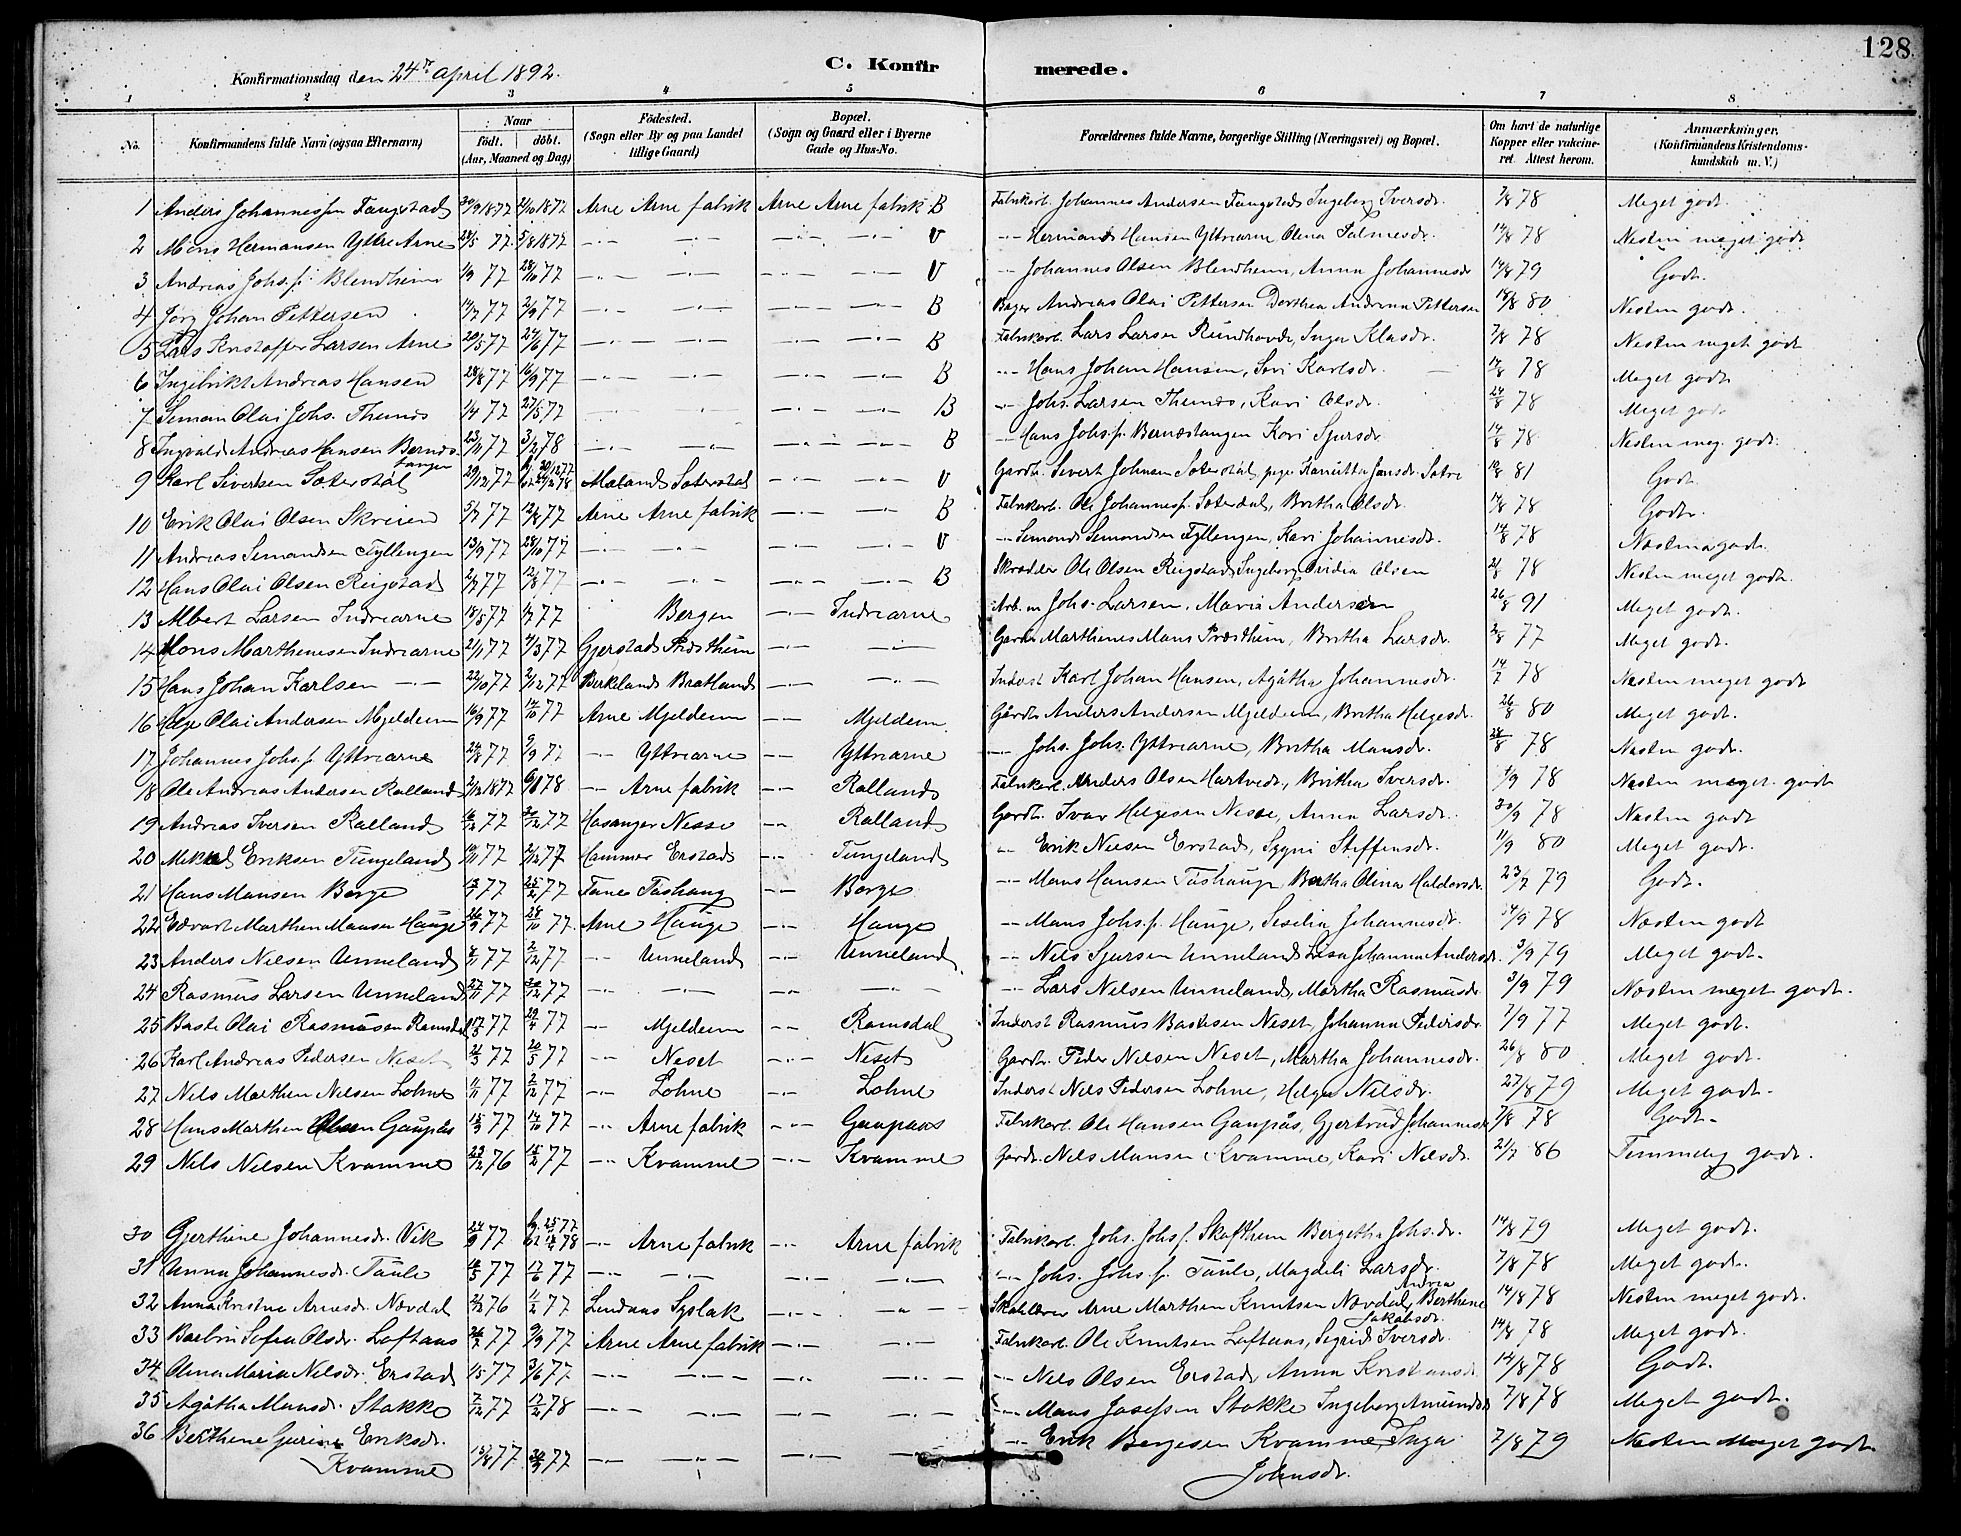 128
Konfirmationsdag den 24de April 1892.
C. Konfirmerede.
1 2 3 4 5 6 7 8
No. Konfirmandens fulde Navn (ogsaa Efternavn) Naar født. døbt. (Aar, Maaned og Dag) Fødested. (Sogn eller By og paa Landet tillige Gaard) Bopæl. (Sogn og Gaard eller i Byerne Gade og Hus-No. Forældrenes fulde Navne, borgerlige Stilling (Næringsvei) og Bopæl. Om havt de naturlige Kopper eller vakcineret. Attest herom. Anmærkninger. (Konfirmandens Kristendomskundskab m. V.)
1 Anders Johannessen Tangstad 30/9 1877 21/10 1877 Arne Arne fabrik Arne Arne fabrik B Fabrikarb. Johannes Andersen Tangstad, Ingeborg Iversdr. 7/8 78 Meget godt.
2 Mons Hermansen Yttre Arne 28/5 77 5/8 1877 -.- -.- -.- -.- U -.- Hermand Hansen Yttrearne Olina Salmesdr. 14/8 78 Nesten meget godt
3 Andreas Johs.s. Blendheim 1/9 77 28/10 77 -.- -.- -.- -.- U -.- Johannes Olsen Blendheim, Anna Johannesdr 14/8 79 Godt.
4 Jørg Johan Pettersen 14/7 77 2/9 77 -.- -.- -.- -.- B Bager Andreas Olai Pettersen Dorthea Andrina Pettersen 18/8 80 Nesten godt.
5 Lars Kristoffer Larsen Arne 20/5 77 24/6 77 -.- -.- -.- -.- B Fabrikarb. Lars Larsen Rundhovde, Inger Klasdr. 7/8 78 Nesten meget godt
6 Ingebrikt Andreas Hansen 28/8 77 16/9 77 -.- -.- -.- -.- B -.- Hans Johan Hansen, Siri Karlsdr. 14/8 78 Meget godt
7 Simon Olai Johs. Thunes 1/4 77 27/5 77 -.- -.- -.- -.- B -.- Johs. Larsen Thunes, Kari Olsdr. 24/8 78 Meget godt
8 Ingvald Andreas Hansen Bernestangen 23/11 77 3/2 78 -.- -.- -.- -.- B -.- Hans Johs.s. Bernestangen Kari Sjursdr. 14/8 78 Nesten meg. godt.
9 Karl Sivertsen Søterstøl 29/11 77 Mæland Søterstøl -.- -.- U Gardbr. Sivert Johnsen Søterstøl, pige Jansdr. Sætre 10/8 81 Godt.
10 Erik Olai Olsen Skreien 5/7 77 12/8 77 Arne Arne fabrik -.- -.- B Fabrikarb. Ole Johanness. Søterdal, Britha Olsdr. 14/8 78 Godt.
11 Andreas Simondsen Tyllengen 13/9 77 28/10 77 -.- -.- -.- -.- U -.- Simond Simondsen Tyllengen, Kari Johannesdr. 14/8 78 Næsten godt.
12 Hans Olai Olsen Reigstad 2/7 77 12/8 77 -.- -.- -.- -.- B Skrædder Ole Olsen Reigstad, Ingeborg Ovidia Olsen 21/8 78 Nesten meget godt.
13 Albert Larsen Indrearne 18/5 77 1/7 77 Bergen -.- Indrearne Arb.m Johs. Larsen, Maria Andersen 26/8 91 Meget godt.
14 Mons Marthinesen Indrearne 21/1 77 4/3 77 Gjerstad Præsthun -.- -.- Gardm Marthines Mons Præsthun, Britha Larsdr. 2/8 77 Meget godt.
15 Hans Johan Karlsen -.- 22/10 77 2/12 77 Birkeland Bratland -.- -.- Inderst Karl Johan Hansen, Agåtha Johannesdr. 14/7 78 Nesten meget godt
16 Helge Olai Andersen Mjeldeim 16/9 77 14/10 77 Arne Mjeldeim -.- Mjeldeim Gårdbr. Anders Andersen Mjeldeim, Britha Helgesdr. 26/8 80 Meget godt.
17 Johannes Johs.s. Yttrearne 24/8 77 9/9 77 -.- Yttrearne -.- Yttrearne -.- Johs. Johs. Yttrearne, Britha Monsdr. 28/8 78 Næsten godt.
18 Ole Andreas Andersen Rolland 2/12 1877 6/1 78 -.- Arne fabrik -.- Rolland Fabrikarb. Anders Olsen Hartvedt, Britha Iversdr. 1/9 78 Næsten meget godt
19 Andreas Iversen Rolland 16/12 77 26/12 77 Hosanger Nesse -.- Rolland Gardbr. Ivar Helgesen Nesse, Anna Larsdr. 30/9 78 Næsten godt
20 Mikkel Eriksen Tungeland 14/11 77 2/12 77 Hammer Erstad -.- Tungeland -.- Erik Nilsen Erstad, Sygni Steffensdr. 11/9 80 Meget godt.
21 Hans Monsen Borge 13/1 77 25/2 77 Fane Tåshaug -.- Borge -.- Mons Hansen Tåshaug, Bertha Olina Haldorsdr. 23/7 79 Godt.
22 Edvart Marthin Monsen Hauge 26/9 77 28/10 77. Arne Hauge -.- Hauge -.- Mons Johs.s. Hauge, Sesilia Johannesdr. 14/9 78 Næsten godt
23 Anders Nilsen Unneland 9/11 77 2/12 77 -.- Unneland -.- Unneland. -.- Nils Sjursen Unneland Lisa Johanna Andersdr. 3/9 79 Meget godt.
24 Rasmus Larsen Unneland 27/11 77 30/12 77 -.- -.- -.- -.- -.- Lars Nilsen Unneland, Martha Rasmusdr. 3/9 79 Næsten meget godt.
25 Baste Olai Rasmusen Romsdal 17/3 77 29/4 77 -.- Mjeldeim -.- Romsdal Inderst Rasmus Bastesen Neset, Johanna Pedersdr. 1/9 77 Meget godt.
26 Karl Andreas Pedersen Neset 21/3 77 20/5 77 -.- Neset -.- Neset Gardbr. Peder Nilsen Neset, Martha Johannesdr. 26/8 80 Meget godt.
27 Nils Marthin Nilsen Lohne 11/11 77 2/12 77 -.- Lohne -.- Lohne Inderst Nils Pedersen Lohne, Helga Nilsdr. 27/8 79 Meget godt.
28 Hans Marthin Olsen Gaupås 15/9 77 14/10 77 -.- Arne fabrik -.- Gaupaas Fabrikarb. Ole Hansen Gaupås, Gjertrud Johannesdr 7/8 78 Godt.
29 Nils Nilsen Kvamme 23/12 76 18/2 77 -.- Kvamme -.- Kvamme Gardbr. Nils Monsen Kvamme, Kari Nilsdr. 21/7 86 Temmelig godt.
30 Gjerthine Johannesdr. Vik 24/9 77 -.- Arne fabrik -.- Arne fabrik Fabrikarb. Johs. Johs.s. Skaftheim Bergetha Johs.dr. 14/8 79 Meget godt.
31 Anna Johannesdr. Taule 16/5 77 17/6 77 -.- -.- -.- -.- -.- Johs. Johs.s. Taule, Magdeli Larsdr. 7/8 78 Meget godt.
32 Anna Kristine Arnesdr. Nævdal 2/12 76 11/2 77 Lindaas Syslak -.- -.- Skolelærer Arne Marthin Knutsen Nævdal, Andrea Berthine Jakobsdr. 14/8 78 Nesten meget godt.
33 Barbra Sofia Olsdr. Loftaas 26/7 77 9/9 77 Arne Arne fabrik -.- -.- Fabrikarb. Ole Knutsen Loftaas, Segrid Iversdr. 14/8 78 Meget godt.
34 Olina Maria Nilsdr. Erstad 1/5 77 3/6 77 -.- -.- -.- -.- -.- Nils Olsen Erstad Anna Kristiansdr. 14/8 78 Godt.
35 Agåtha Monsdr. Stokke 7/12 77 17/2 78 -.- -.- -.- -.- -.- Mons Josefsen Stokke Ingeborg Amundsdr 7/8 78 Meget godt.
36 Berthine Gurine Eriksdr. Kvamme 15/8 77 77 -.- -.- -.- -.- -.- Erik Bergesen Kvamme, Inga Johnsdr. 7/8 79 Næsten meget godt